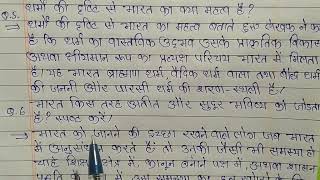 Q.5. धर्मों की दृष्टि से भारत का क्या महत्व है?
→ धर्मों की दृष्टि से भारत का महत्व बताते हुए लेखक ने कहा
है कि धर्म का वास्तविक उद्भव उसके प्राकृतिक विकास
अथवा क्षीणमान रूप का प्रत्यक्ष परिचय भारत में मिलता
है। यह भारत ब्राह्मण धर्म, वैदिक धर्म वाला तथा बौद्ध धर्म
की जननी और पारसी धर्म की शरण-स्थली है।
Q.6 भारत किस तरह अतीत और सुदूर भविष्य को जोड़ता
है? स्पष्ट करें।
→ भारत को जानने की इच्छा रखने वाले लोग जब भारत
में अनुसंधान करते हैं तो उनकी जैसी भी समस्या हो
चाहे शिक्षा क्षेत्र में, कानून बनाने पक्ष में, अथवा शासन